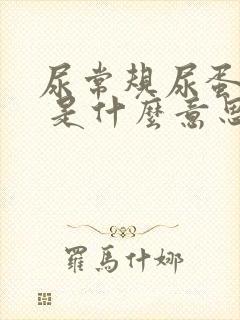 尿常規尿蛋
是什麼意思
羅馬什娜